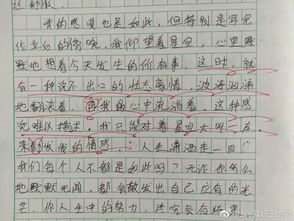 我的感受也是如此，但特别是写完
作业后的夜晚，我仰望着星空，心里默
默地想着今天发生的所有事，这时，就
会一种说不出口的状态感情，波涛汹涌
地翻滚着，在我的心中流淌着，这种感
觉难以描述，我只能对着星空大喊一声，
来散发我的情感。"人生潇洒走一回"
我们每个人不都是如此吗？无论你怎么
地默默无闻，都会散发出自己应有的光
芒，你人生中的努力，终究会有结果